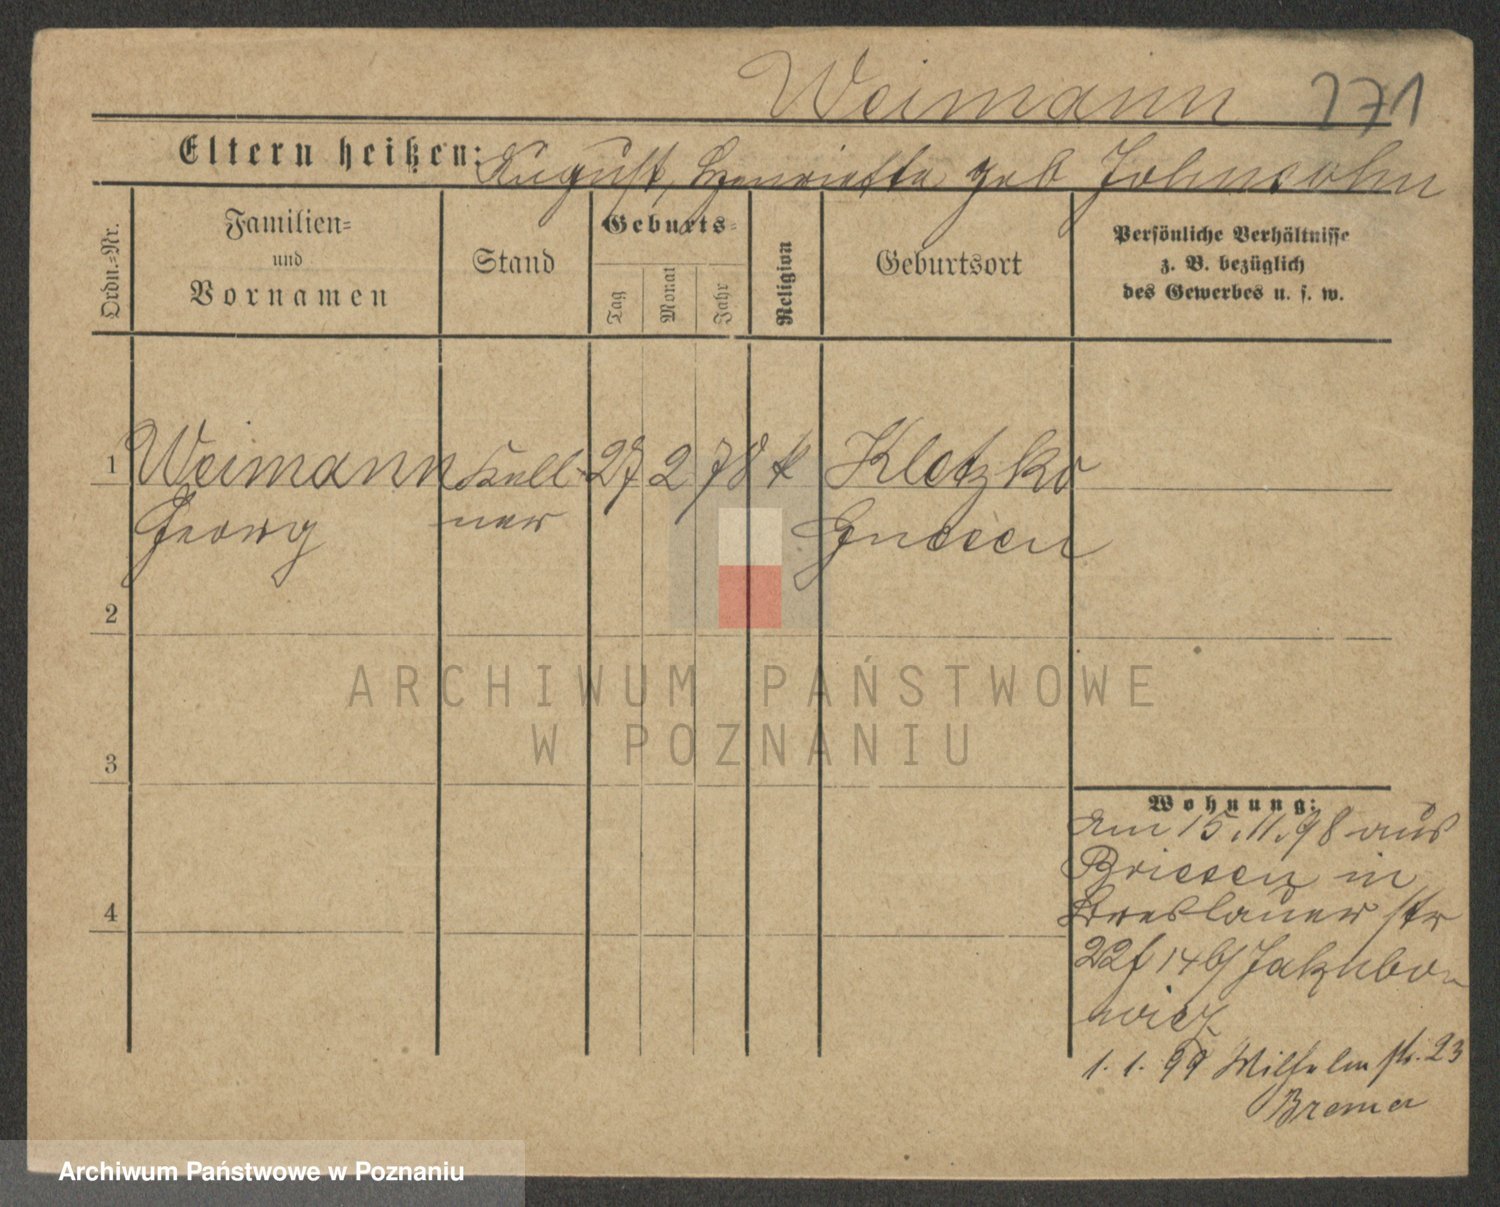 Weimann 271
Eltern heißen: August, Henriette geb Johnsohn
Ordn.-Nr.
Familien-
und
Vornamen
Stand
Geburts-
Tag
Monat
Jahr
Religion
Geburtsort
Persönliche Verhältnisse
z. B. bezüglich
des Gewerbes u. s. w.
1 Weimann Kell- 27 2 78 k Kletzko
Georg ner Gnesen
2
3
4
Wohnung:
Am 15.11.98 aus
Briesen in
Breslauer str
22 b/ Jakubo-
wicz
1. 1. 99 Wilhelm str. 23
ARCHIWUM PAŃSTWOWE
W POZNANIU
Archiwum Państwowe w Poznaniu